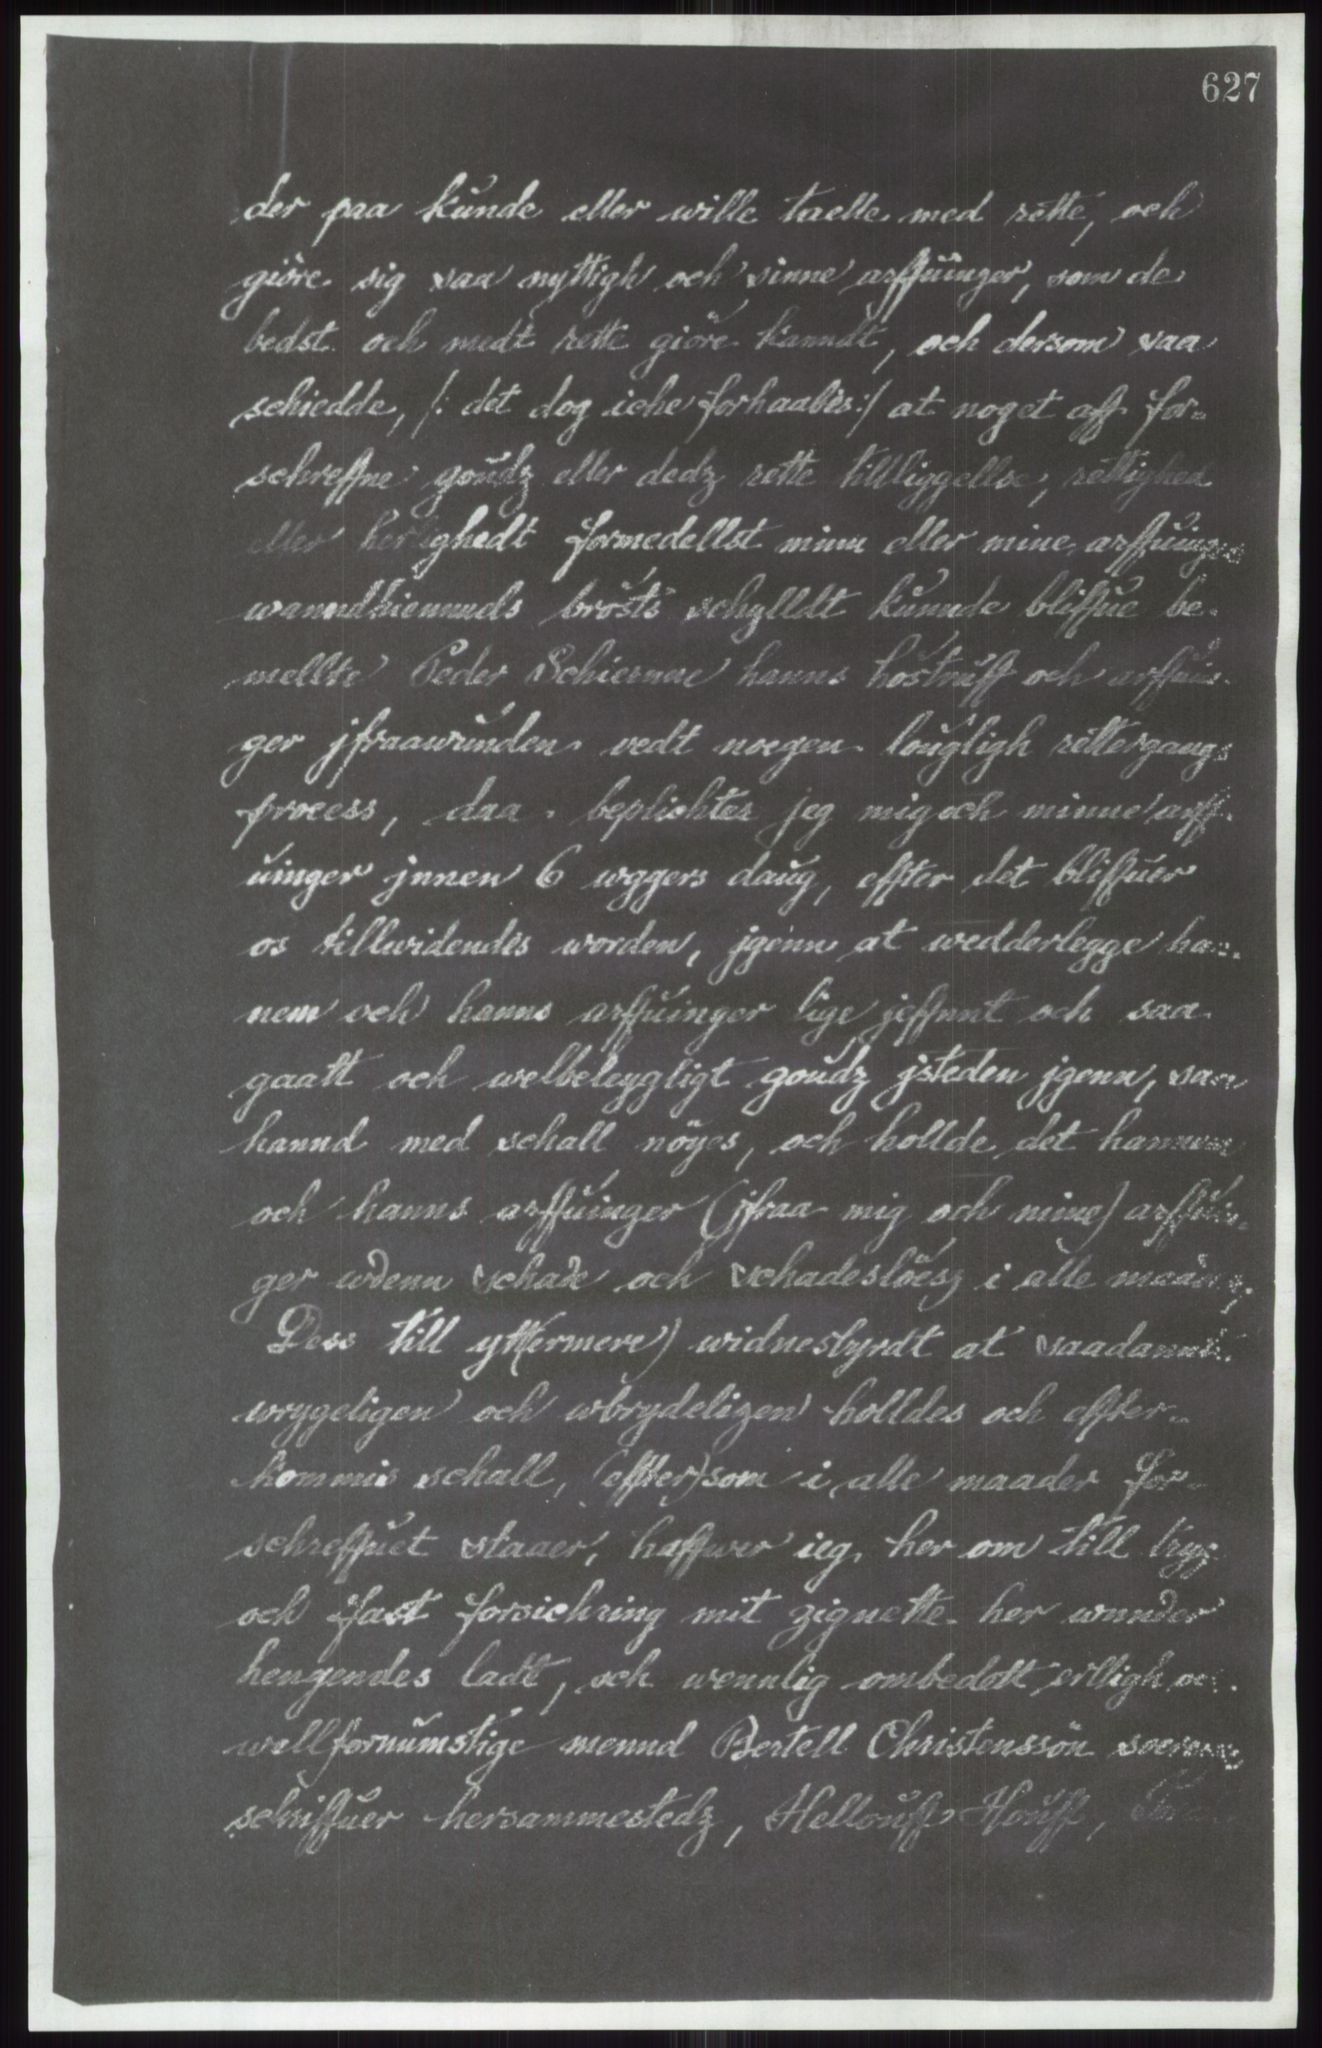 627
der paa kunde eller wille taelle med rette, och
giöre sig saa nyttigh och sinne arffuinger, som de
bedst och medt rette giöre kanndt, och dersom saa
schiedde, /: det dog iche forhaabes :/ at noget aff for-
schreffne goudz eller dedz rette tilliggellse, rettighed
eller herlighedt formedellst minn eller mine arffuinger
wanndhiemmels brösts schylldt kunnde bliffue be-
mellte Peder Schiernne hanns höstruff och arffuin-
ger jfraawunden vedt noegen lougligh rettergangs
process, daa beplichter jeg mig och minne arff-
uinger jnnen 6 wggers daug, effter det bliffuer
os tillwidendes worden, jgenn at wedderlegge han-
nem och hanns arffuinger lige jeffnnt och saa
gaatt och welbeleygligt goudz jsteden jgenn, saa
hannd med schall nöyes, och hollde det hannem
och hanns arffuinger (jfraa mig och mine) arffuin-
ger wdenn schade och schadeslöesz i alle maader,
Dess till ytt(ermere) widnesbyrdt at saadannt
wrygeligen och wbrydeligen holldes och effter-
kommis schall, (effter)som i alle maader for-
schreffuet staaer, haffwer ieg her om till tryg
och fast forsichring mit zignette her wunder
hengendes ladt, och wennlig ombedett erlligh oc
wellfornumstige mennd Bertell Christenssön soeren-
schriffuer hersammestedz, Hellouff Houff,